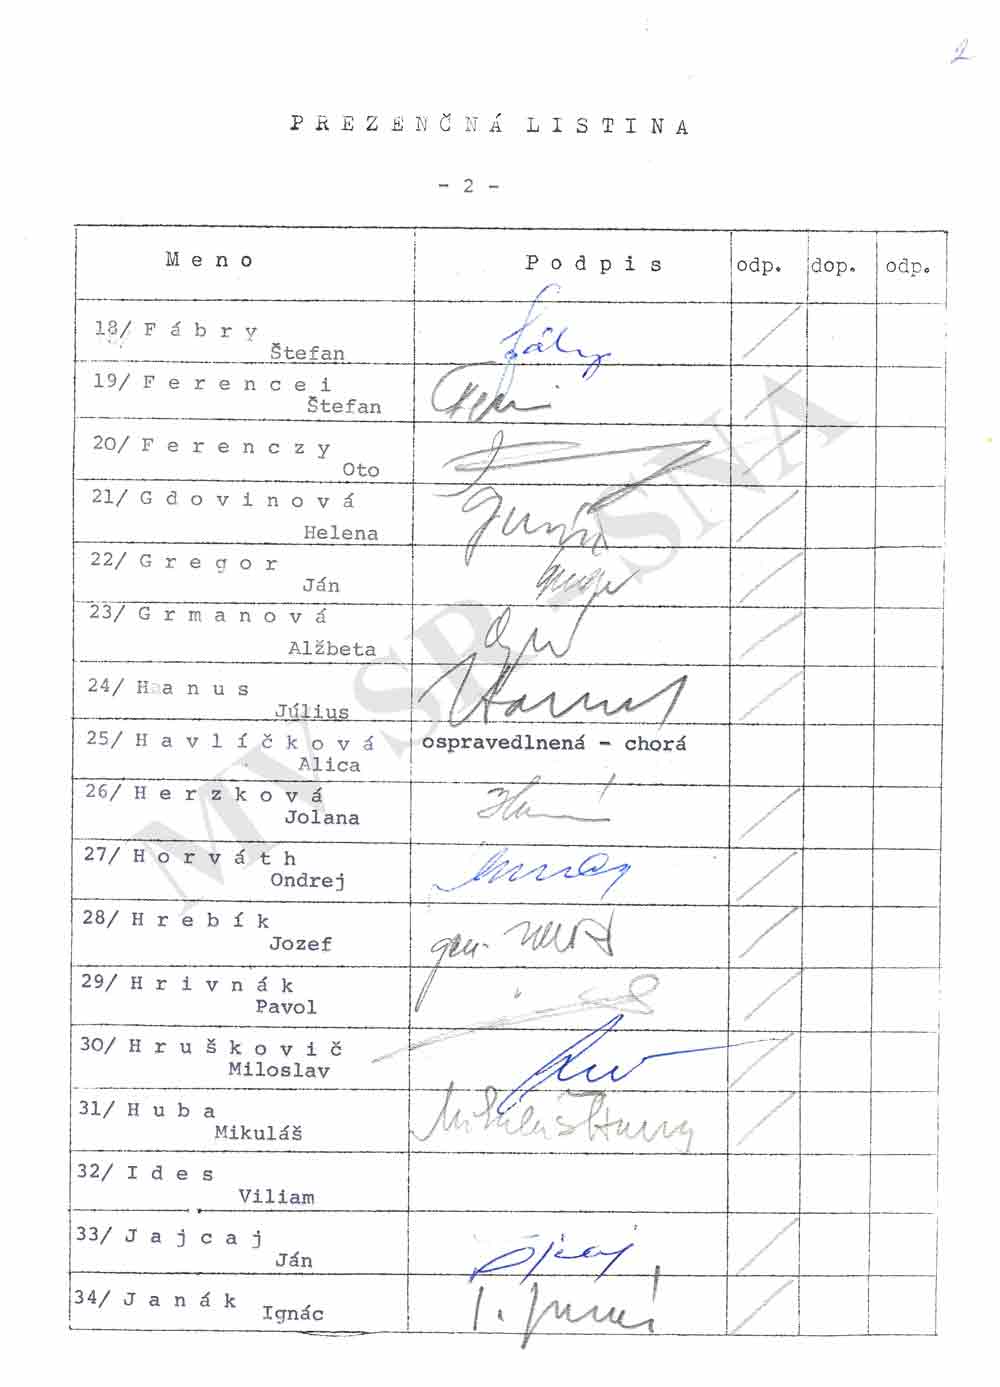 2
P R E Z E N Č N Á L I S T I N A
- 2 -
M e n o P o d p i s odp. dop. odp.
18/ F á b r y
Štefan
19/ F e r e n c e i
Štefan
20/ F e r e n c z y
Oto
21/ G d o v i n o v á
Helena
22/ G r e g o r
Ján
23/ G r m a n o v á
Alžbeta
24/ H a n u s
Július
25/ H a v l í č k o v á ospravedlnená - chorá
Alica
26/ H e r z k o v á
Jolana
27/ H o r v á t h
Ondrej
28/ H r e b í k
Jozef
29/ H r i v n á k
Pavol
30/ H r u š k o v i č
Miloslav
31/ H u b a
Mikuláš
32/ I d e s
Viliam
33/ J a j c a j
Ján
34/ J a n á k
Ignác
MV SR SNA